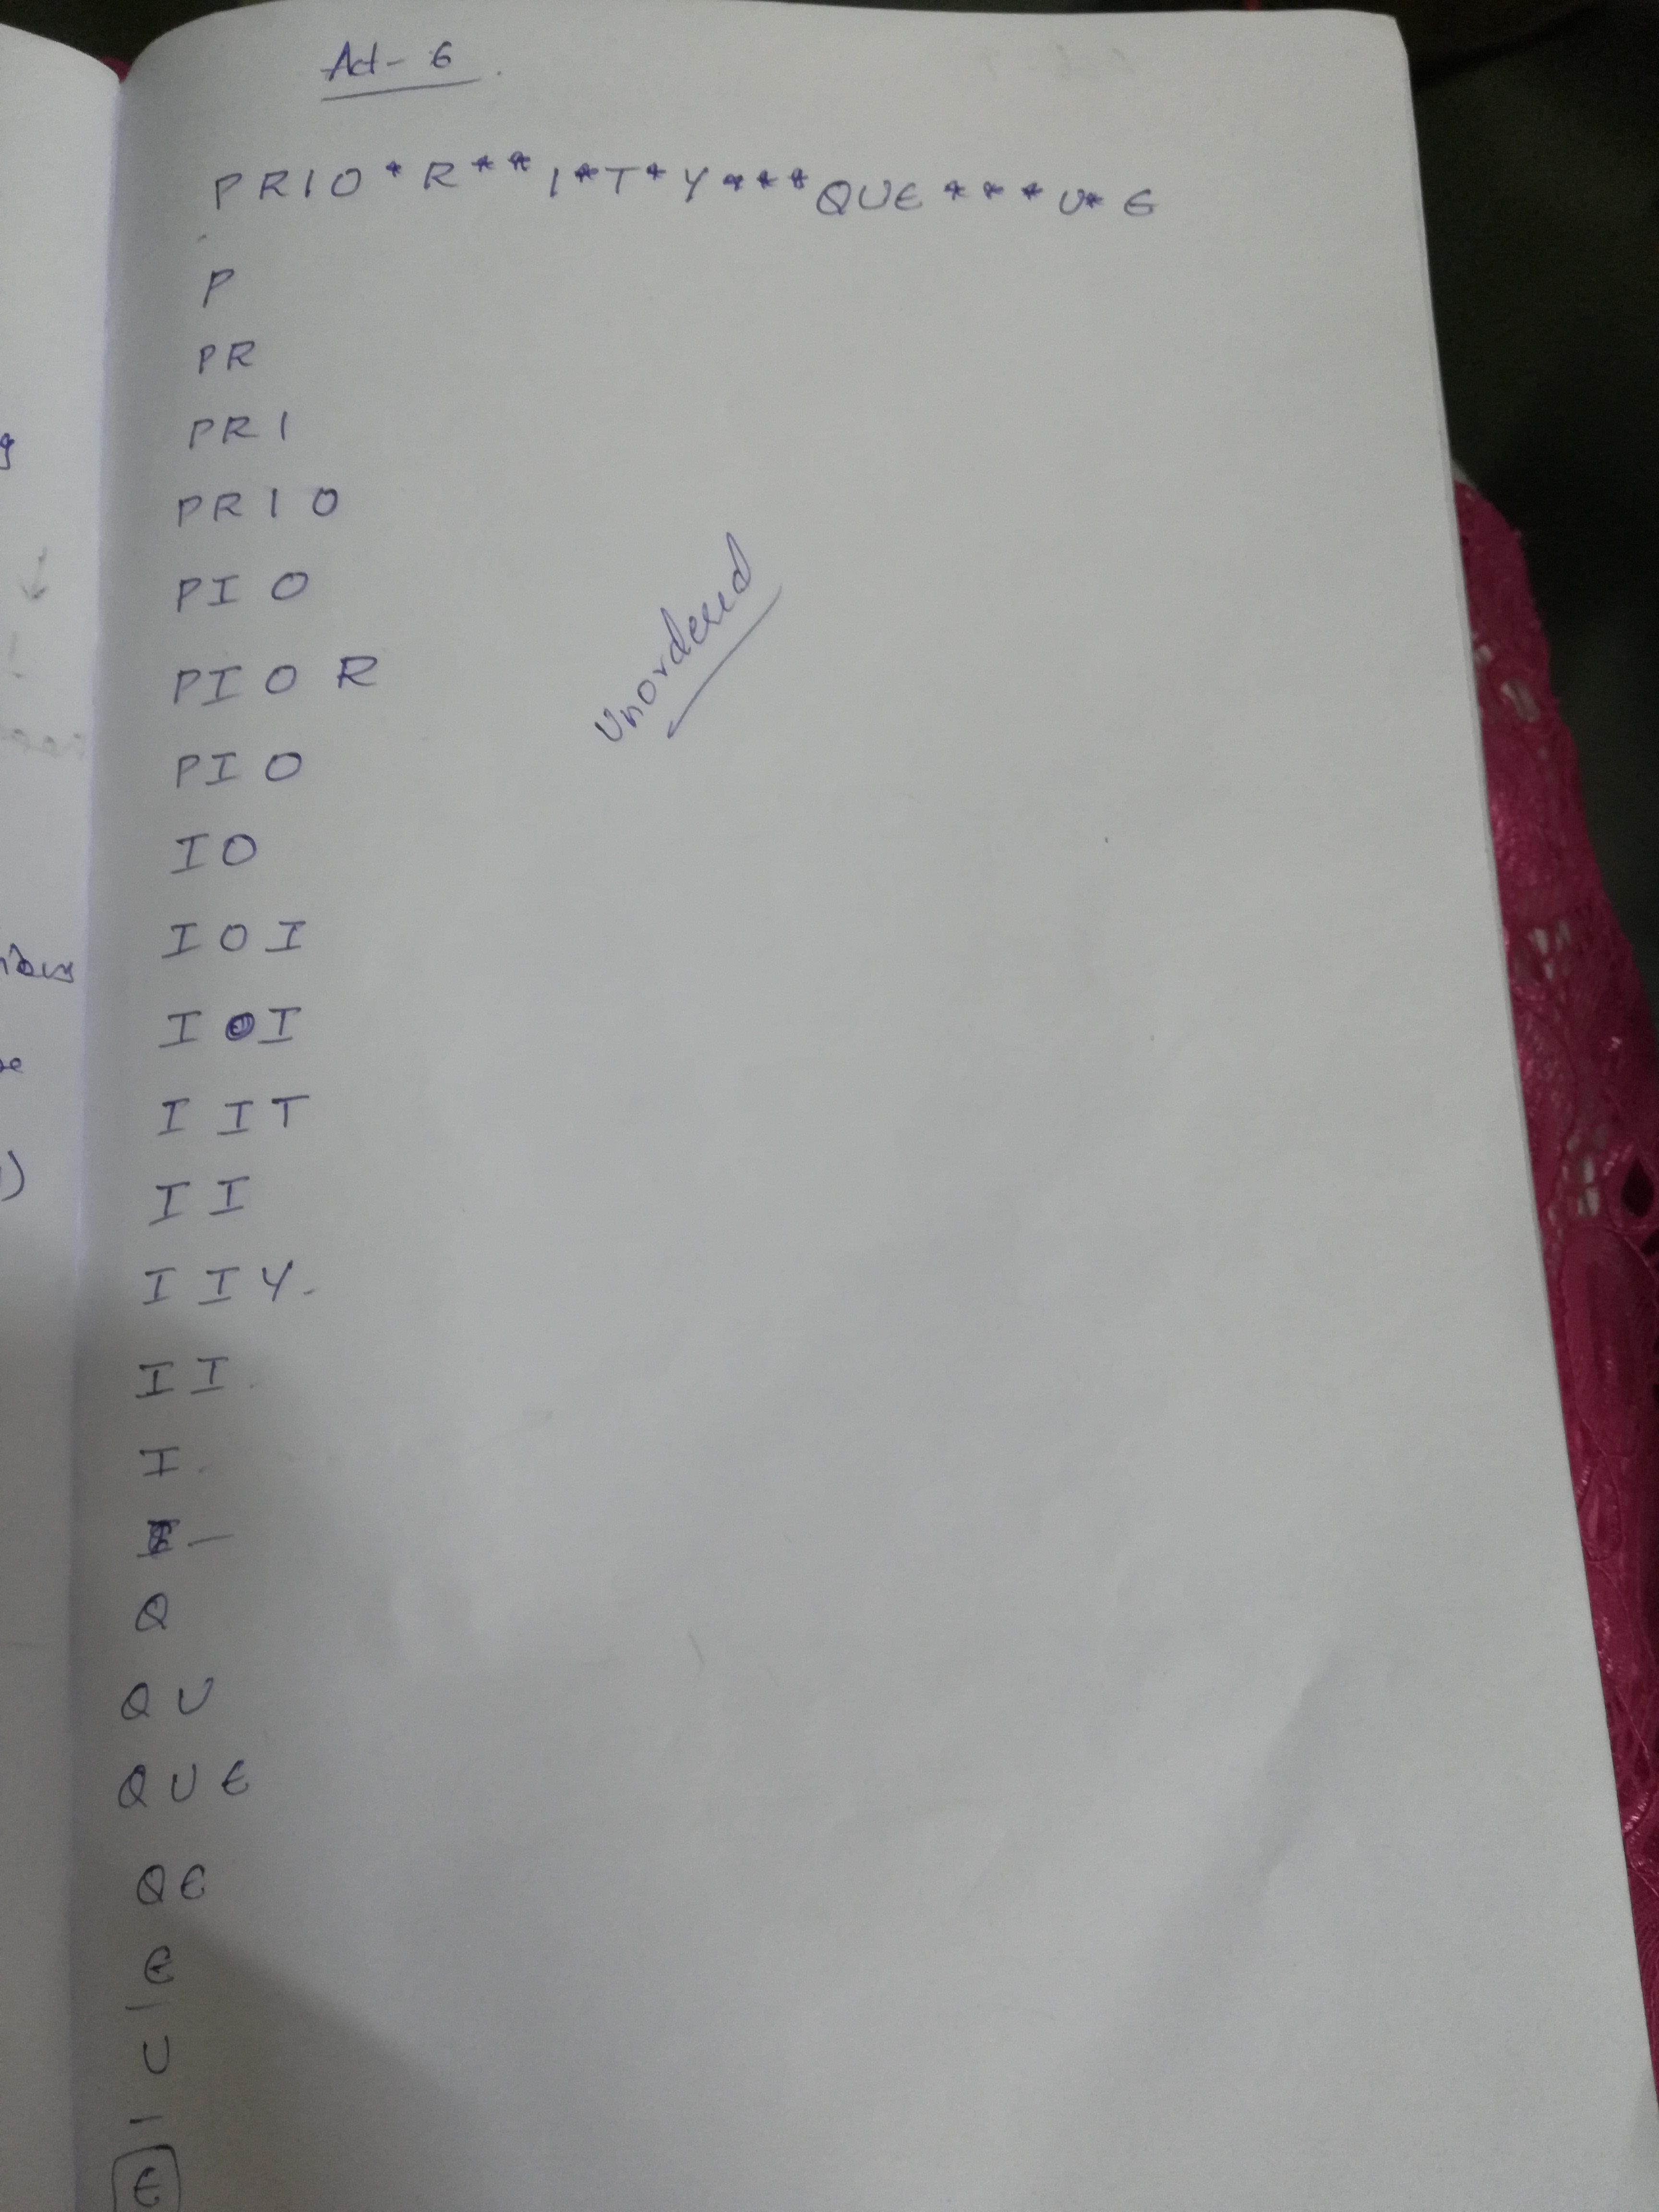 Act- 6
PRIO*R**I*T*Y***QUE***U*E
P
PR
PRI
PRIO
PIO
PIOR
PIO
IO
IOI
II
IIT
II
IIY.
II.
I.
—
Q
QU
QUE
QE
E
—
U
—
E
Unordered